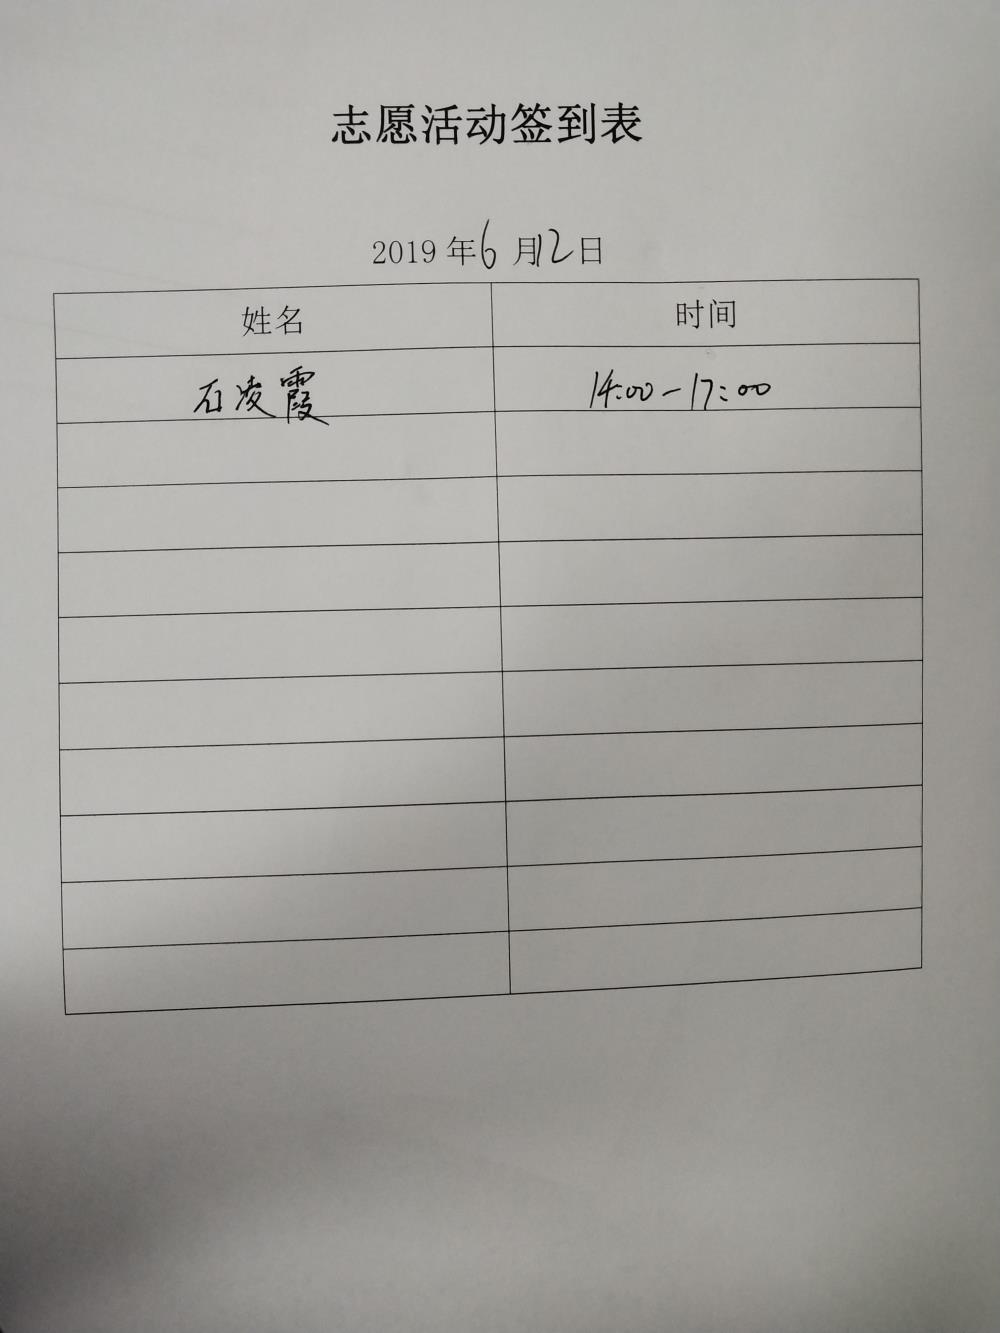 志愿活动签到表
2019年6月12日
姓名 时间
石凌霞 14:00-17:00